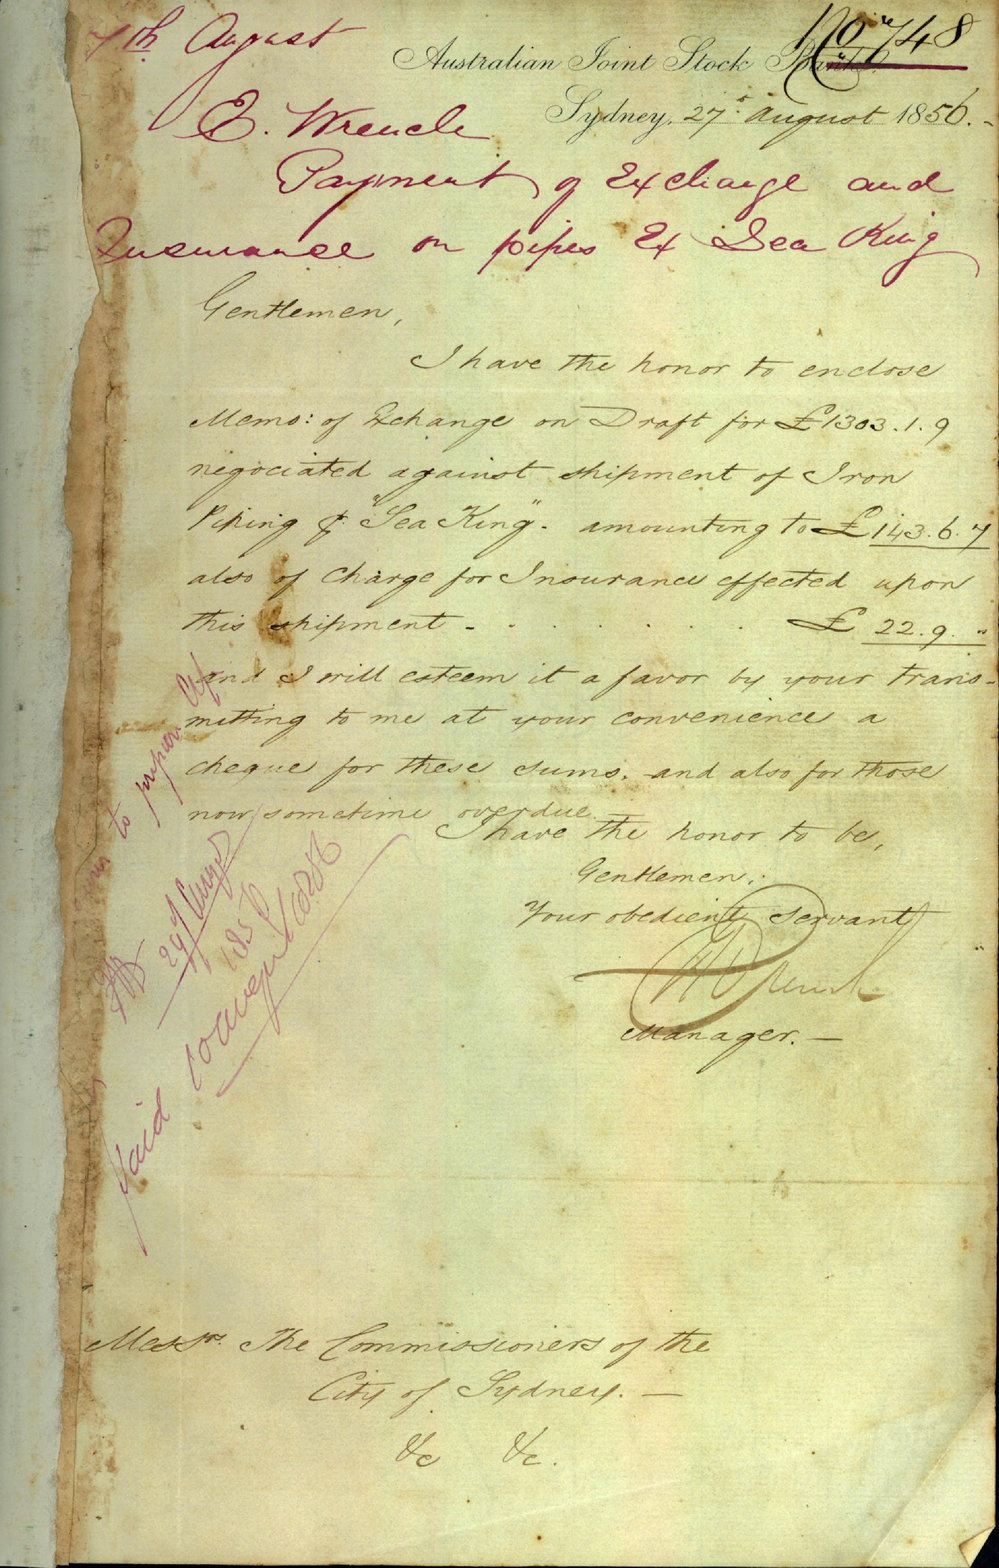 No 748
7th August
Australian Joint Stock Bank
Sydney, 27th August 1856.-
E. Wrench
Payment of Exchange and
Insurance on pipes Ex Sea King
Gentlemen,
I have the honor to enclose
Memo: of Exchange on Draft for £1303.1.9
negociated against shipment of Iron
Piping p. "Sea King". amounting to £143.6.7
also of Charge for Insurance effected upon
this shipment - . . . . . . £ 22.9."
and I will esteem it a favor by your trans-
mitting to me at your convenience a
cheque for these sums. and also for those
now sometime overdue.
I have the honor to be,
Gentlemen,
Your obedient Servant
Wrench
Manager. -
to prepare
29
Paid
Messrs. The Commissioners of the
City of Sydney. -
&c &c.